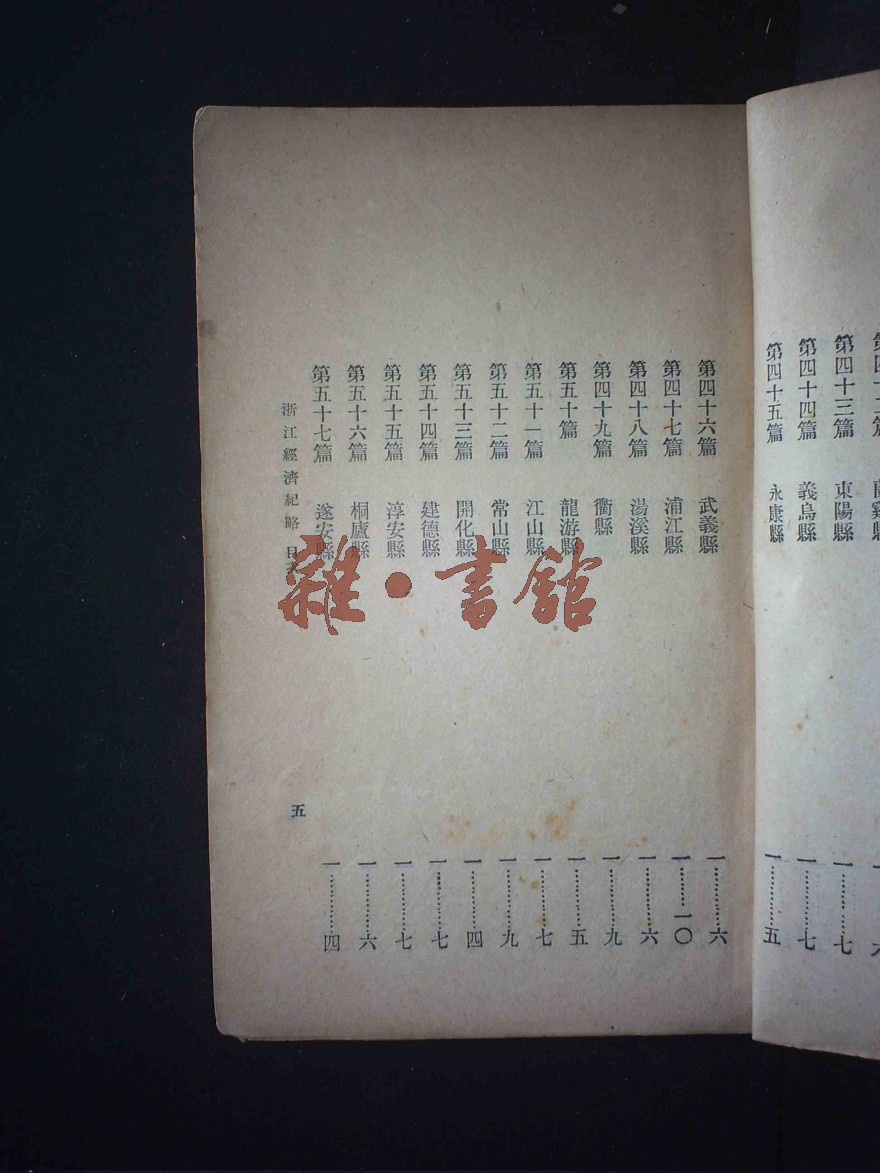 第四十三篇 東陽縣 一…………七
第四十四篇 義烏縣 一…………七
第四十五篇 永康縣 一…………五
第四十六篇 武義縣 一…………六
第四十七篇 浦江縣 一…………一〇
第四十八篇 湯溪縣 一…………六
第四十九篇 衢縣 一…………九
第五十篇 龍游縣 一…………五
第五十一篇 江山縣 一…………七
第五十二篇 常山縣 一…………九
第五十三篇 開化縣 一…………四
第五十四篇 建德縣 一…………七
第五十五篇 淳安縣 一…………七
第五十六篇 桐廬縣 一…………六
第五十七篇 遂安縣 一…………四
浙江經濟紀略 目次
五
雜·書館